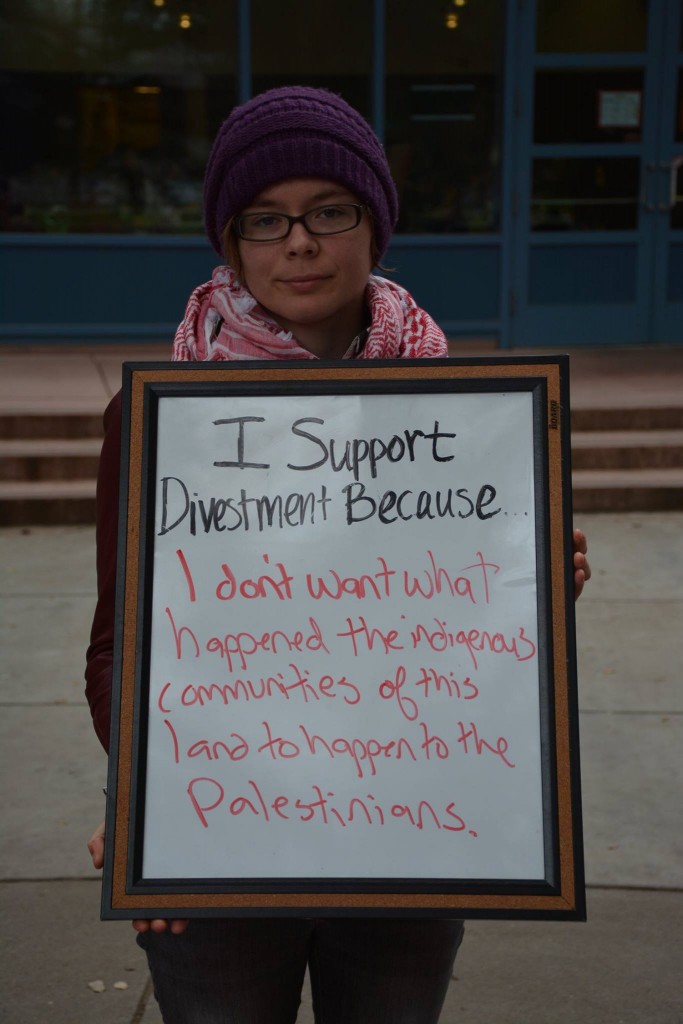 I Support
Divestment Because...
I don't want what
happened the indigenous
communities of this
land to happen to the
Palestinians.